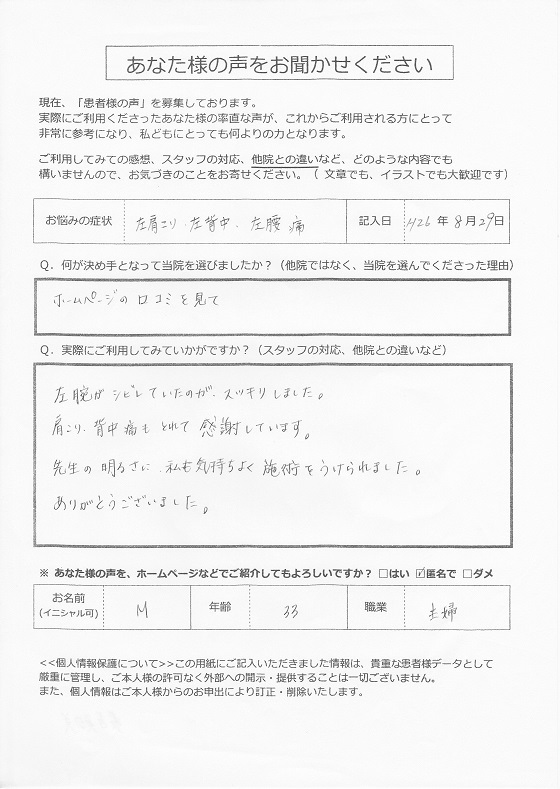 あなた様の声をお聞かせください
現在、「患者様の声」を募集しております。
実際にご利用くださったあなた様の率直な声が、これからご利用される方にとって
非常に参考になり、私どもにとっても何よりの力となります。
ご利用してみての感想、スタッフの対応、他院との違いなど、どのような内容でも
構いませんので、お気づきのことをお寄せください。（ 文章でも、イラストでも大歓迎です）
お悩みの症状 左肩こり、左背中、左腰痛 記入日 H26 年 8 月 29 日
Q．何が決め手となって当院を選びましたか？（他院ではなく、当院を選んでくださった理由）
ホームページの口コミを見て
Q．実際にご利用してみていかがですか？（スタッフの対応、他院との違いなど）
左腕がシビレていたのが、スッキリしました。
肩こり、背中痛もとれて感謝しています。
先生の明るさに、私も気持ちよく施術をうけられました。
ありがとうございました。
※ あなた様の声を、ホームページなどでご紹介してもよろしいですか？ □はい ☑匿名で □ダメ
お名前 M 年齢 33 職業 主婦
(イニシャル可)
<<個人情報保護について>>この用紙にご記入いただきました情報は、貴重な患者様データとして
厳重に管理し、ご本人様の許可なく外部への開示・提供することは一切ございません。
また、個人情報はご本人様からのお申出により訂正・削除いたします。